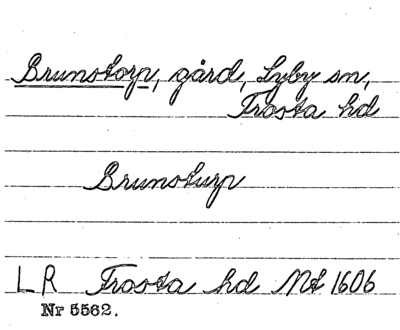 Brunstorp, gård, Lyby sn,
Frosta hd
Brunsturp
LR Frosta hd Mt 1606
Nr 5562.